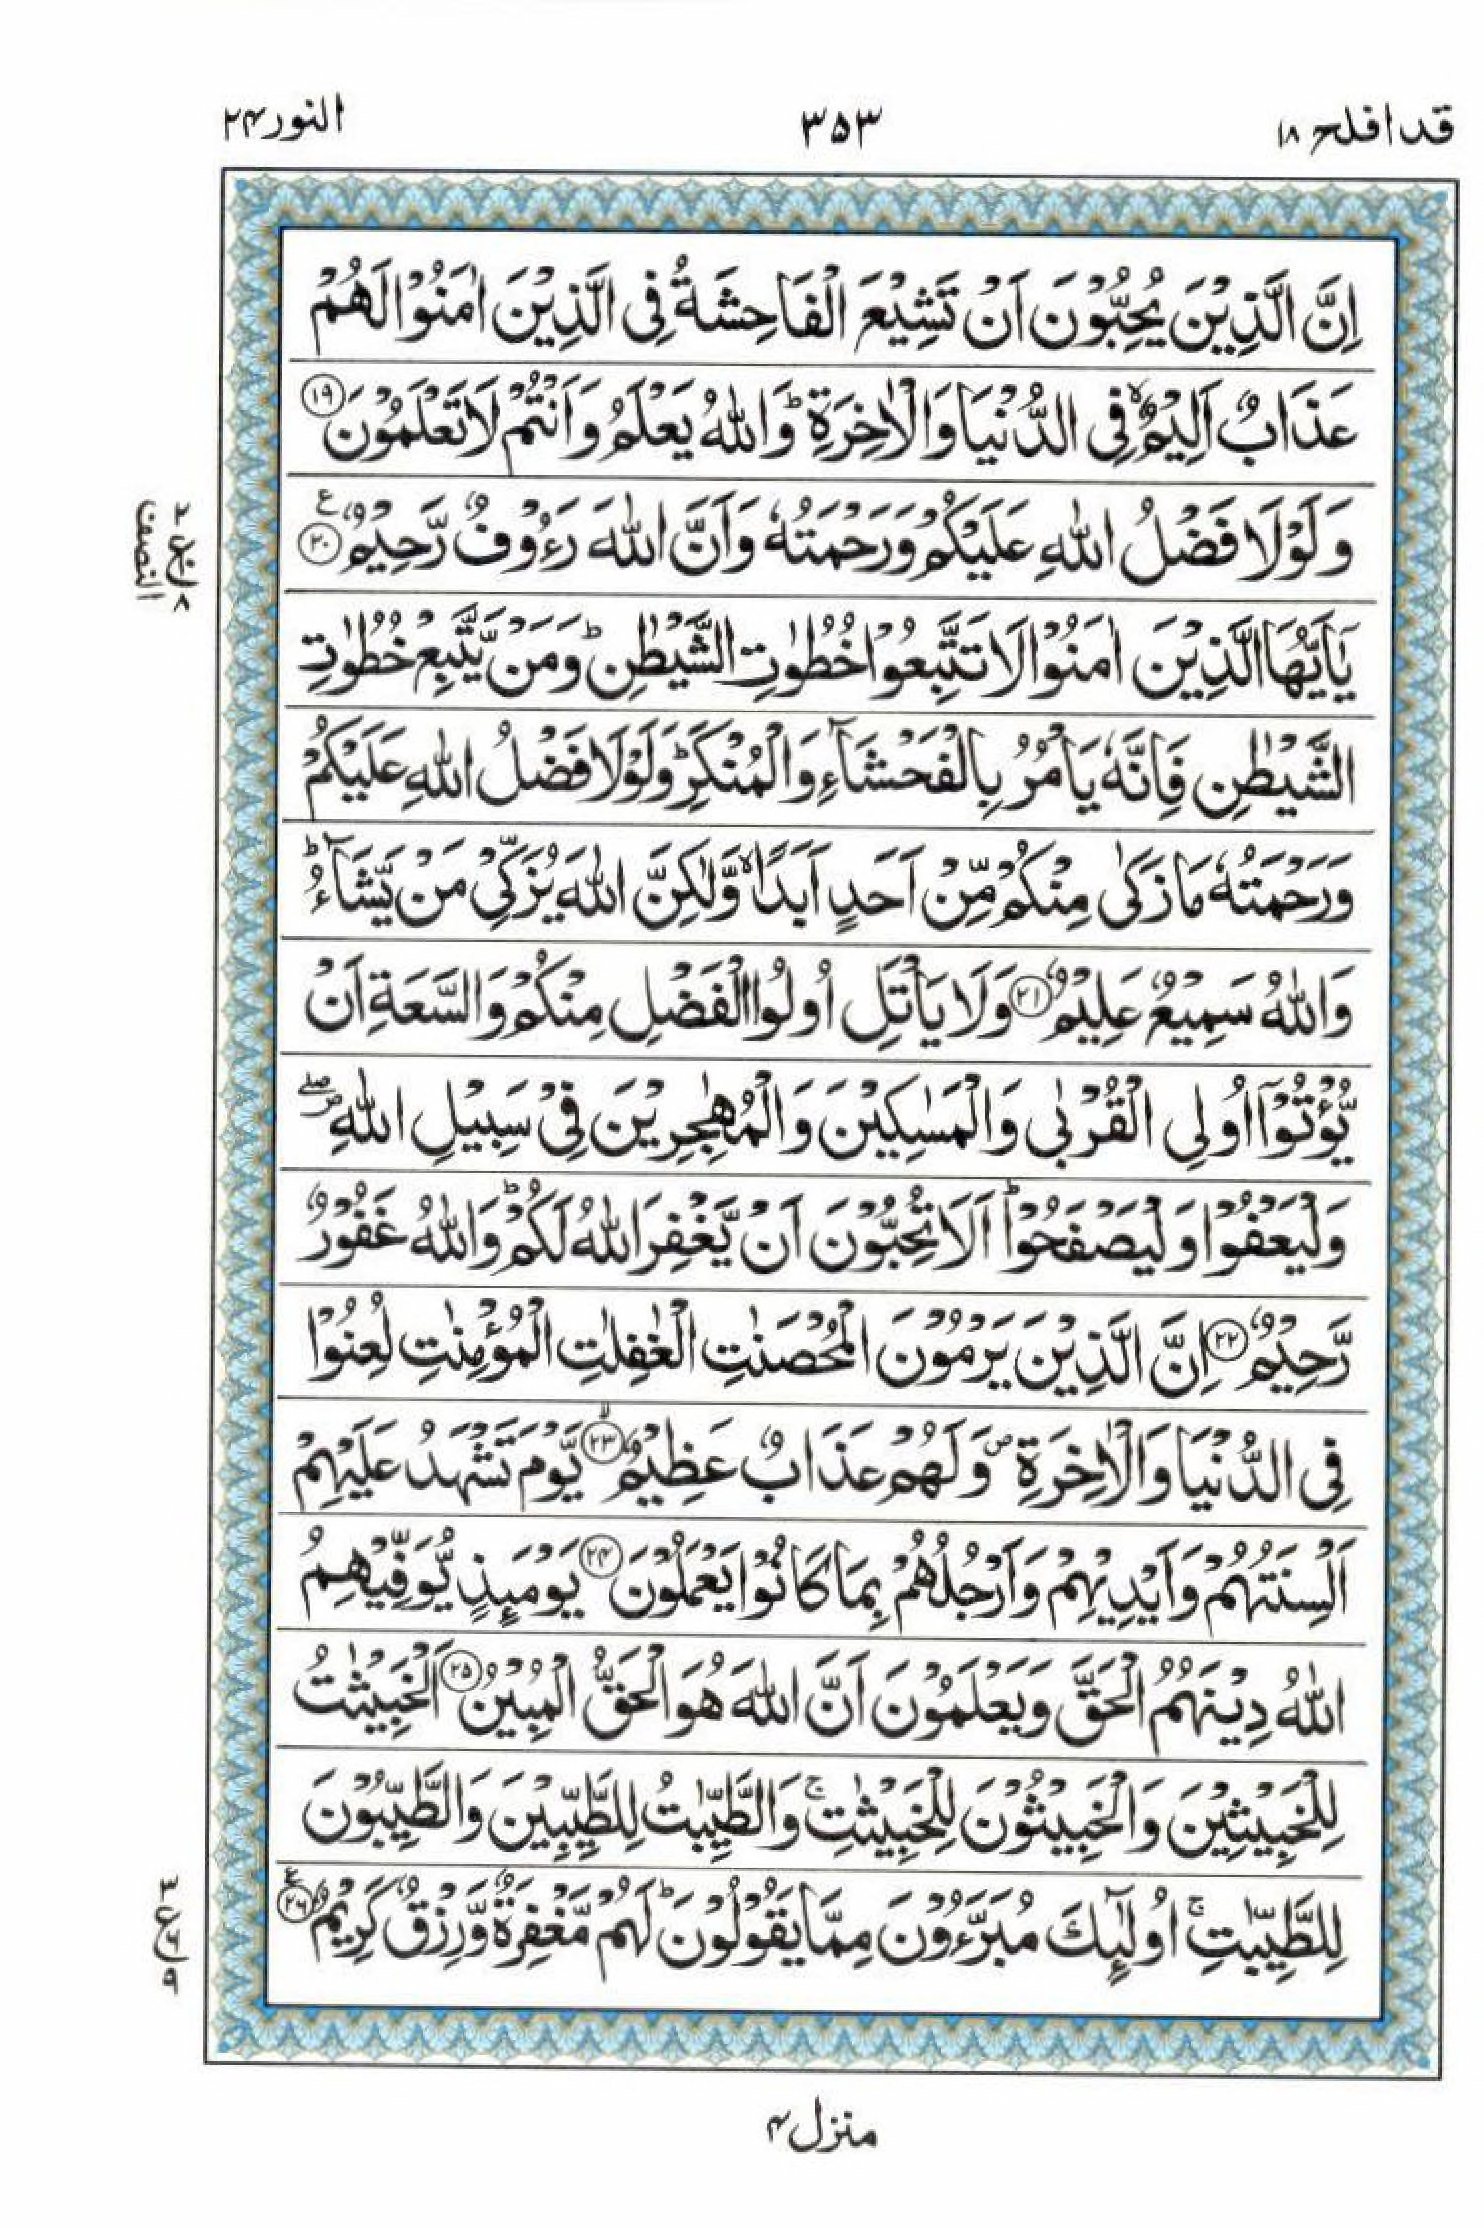 قد افلح ۱۸
۳۵۳
النور ۲۴
اِنَّ الَّذِیْنَ یُحِبُّوْنَ اَنْ تَشِیْعَ الْفَاحِشَةُ فِی الَّذِیْنَ اٰمَنُوْا لَهُمْ
عَذَابٌ اَلِیْمٌ ۙ فِی الدُّنْیَا وَالْاٰخِرَةِ ؕ وَاللّٰهُ یَعْلَمُ وَاَنْتُمْ لَا تَعْلَمُوْنَ ۱۹
وَلَوْلَا فَضْلُ اللّٰهِ عَلَیْكُمْ وَرَحْمَتُهٗ وَاَنَّ اللّٰهَ رَءُوْفٌ رَّحِیْمٌ ۲۰ ع
یٰۤاَیُّهَا الَّذِیْنَ اٰمَنُوْا لَا تَتَّبِعُوْا خُطُوٰتِ الشَّیْطٰنِ ؕ وَمَنْ یَّتَّبِعْ خُطُوٰتِ
الشَّیْطٰنِ فَاِنَّهٗ یَاْمُرُ بِالْفَحْشَآءِ وَالْمُنْكَرِ ؕ وَلَوْلَا فَضْلُ اللّٰهِ عَلَیْكُمْ
وَرَحْمَتُهٗ مَا زَكٰی مِنْكُمْ مِّنْ اَحَدٍ اَبَدًا ۙ وَّلٰكِنَّ اللّٰهَ یُزَكِّیْ مَنْ یَّشَآءُ ؕ
وَاللّٰهُ سَمِیْعٌ عَلِیْمٌ ۲۱ وَلَا یَاْتَلِ اُولُوا الْفَضْلِ مِنْكُمْ وَالسَّعَةِ اَنْ
یُّؤْتُوْۤا اُولِی الْقُرْبٰی وَالْمَسٰكِیْنَ وَالْمُهٰجِرِیْنَ فِیْ سَبِیْلِ اللّٰهِ ۖ
وَلْیَعْفُوْا وَلْیَصْفَحُوْا ؕ اَلَا تُحِبُّوْنَ اَنْ یَّغْفِرَ اللّٰهُ لَكُمْ ؕ وَاللّٰهُ غَفُوْرٌ
رَّحِیْمٌ ۲۲ اِنَّ الَّذِیْنَ یَرْمُوْنَ الْمُحْصَنٰتِ الْغٰفِلٰتِ الْمُؤْمِنٰتِ لُعِنُوْا
فِی الدُّنْیَا وَالْاٰخِرَةِ ص وَلَهُمْ عَذَابٌ عَظِیْمٌ ۲۳ۙ یَّوْمَ تَشْهَدُ عَلَیْهِمْ
اَلْسِنَتُهُمْ وَاَیْدِیْهِمْ وَاَرْجُلُهُمْ بِمَا كَانُوْا یَعْمَلُوْنَ ۲۴ یَوْمَئِذٍ یُّوَفِّیْهِمُ
اللّٰهُ دِیْنَهُمُ الْحَقَّ وَیَعْلَمُوْنَ اَنَّ اللّٰهَ هُوَ الْحَقُّ الْمُبِیْنُ ۲۵ اَلْخَبِیْثٰتُ
لِلْخَبِیْثِیْنَ وَالْخَبِیْثُوْنَ لِلْخَبِیْثٰتِ ۚ وَالطَّیِّبٰتُ لِلطَّیِّبِیْنَ وَالطَّیِّبُوْنَ
لِلطَّیِّبٰتِ ۚ اُولٰٓئِكَ مُبَرَّءُوْنَ مِمَّا یَقُوْلُوْنَ ؕ لَهُمْ مَّغْفِرَةٌ وَّرِزْقٌ كَرِیْمٌ ۲۶ ع
النصف
۲ ع ۸
۳ ع ۶ ۹
منزل ۴